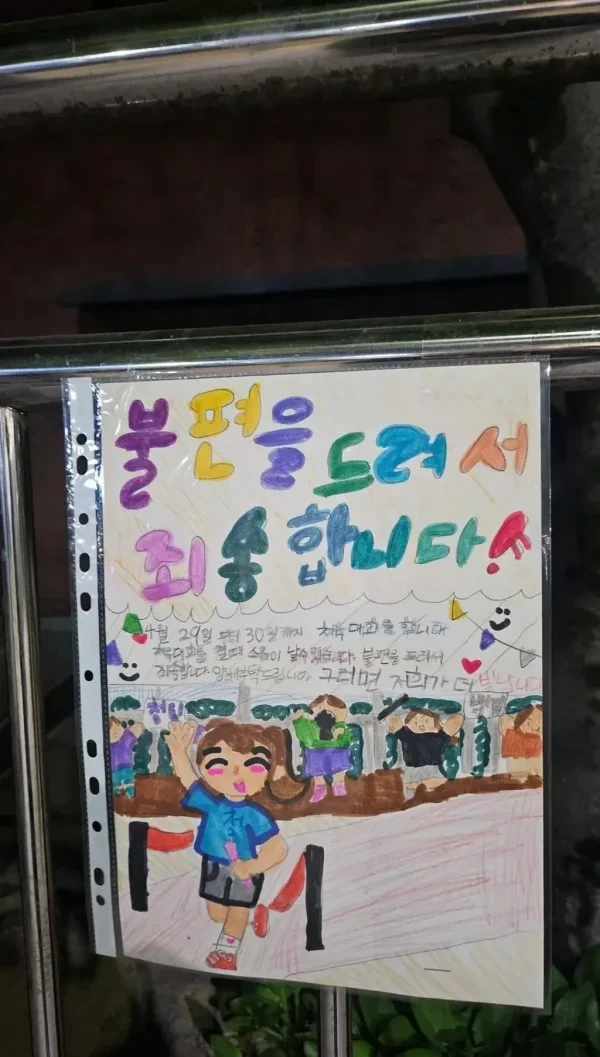 불편을 드려서
죄송합니다!
4월 29일 부터 30일 까지 체육 대회를 합니다
체육대회를 열때 소음이 날수 있습니다. 불편을 드려서
죄송합니다. 양해부탁드립니다. 그러면 저희가 더 빛납니다
청